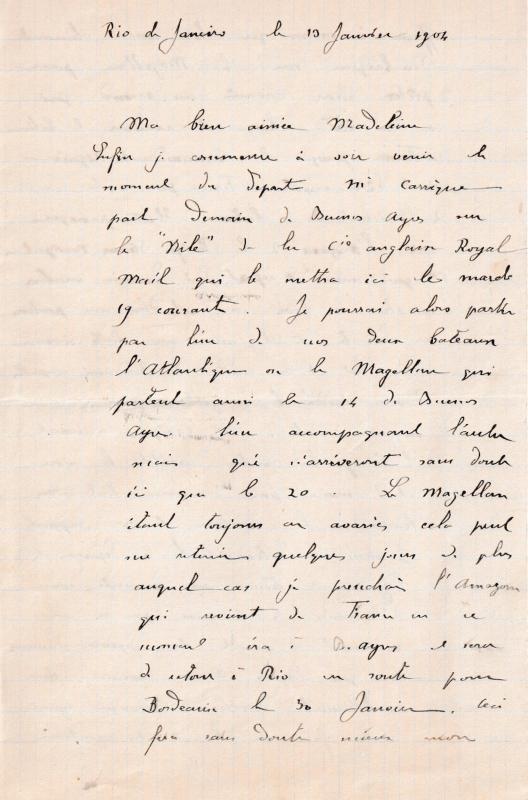 Rio de Janeiro le 13 Janvier 1904
Ma bien aimée Madeleine
Enfin je commence à voir venir le
moment du départ Mr Carrique
part Demain de Buenos Ayres sur
le "Nile" de la Cie anglaise Royal
Maël qui le mettra ici le mardi
19 courant. Je pourrais alors partir
par l'un de nos deux bateaux
l'Atlantique ou le Magellan qui
partent aussi le 14 de Buenos
Ayres l'un accompagnant l'autre
mais qui n'arriveront sans doute
ici que le 20. Le Magellan
étant toujours en avaries cela peut
me retenir quelques jours de plus
auquel cas je prendrai l'Amazone
qui revient de France en ce
moment ira à B. ayres et sera
de retour à Rio en route pour
Bordeaux le 30 Janvier. Ceci
fera sans doute mieux mon